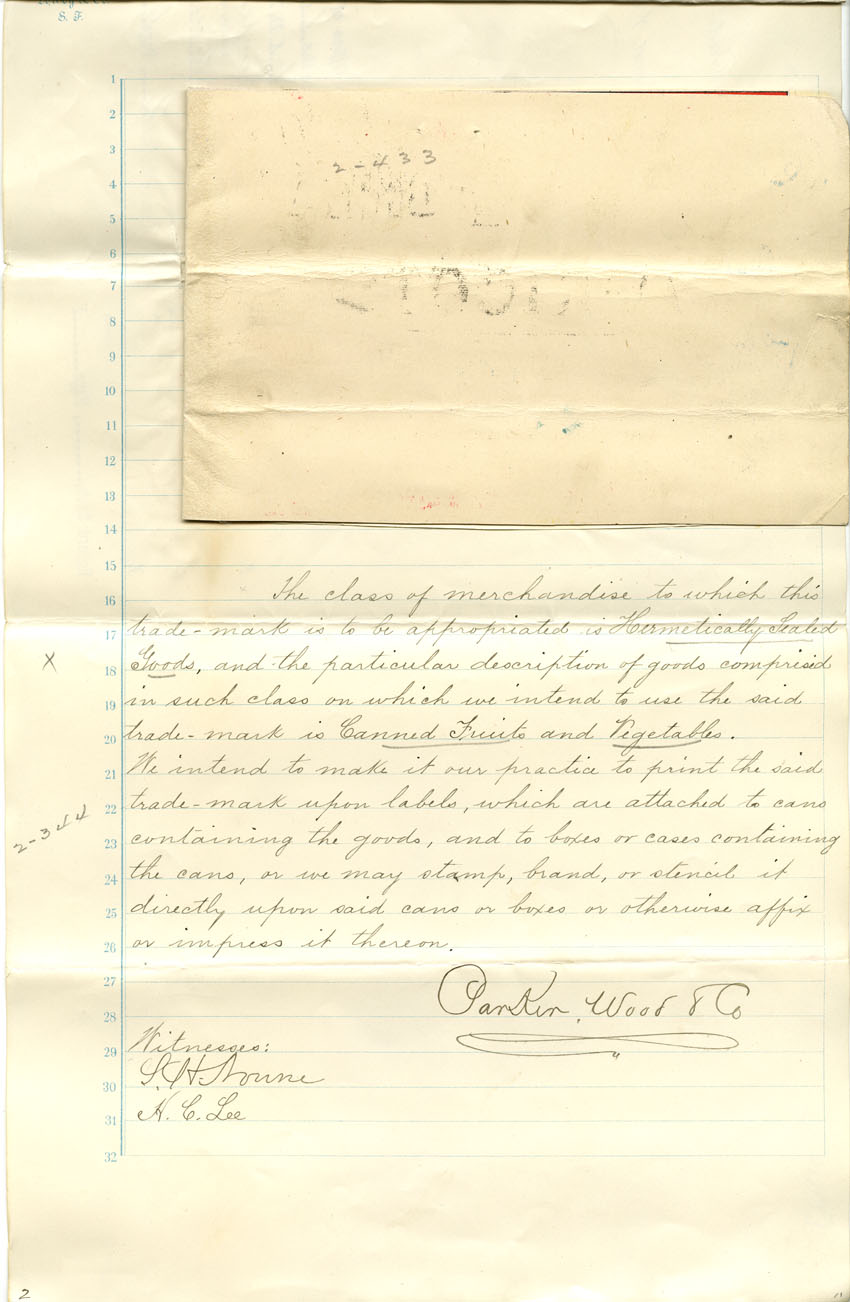 S. F.
1
2
3
2-433
4
5
6
7
8
9
10
11
12
13
14
15
16 The class of merchandise to which this
17 trade-mark is to be appropriated is Hermetically Sealed
X
18 Goods, and the particular description of goods comprised
19 in such class on which we intend to use the said
20 trade-mark is Canned Fruits and Vegetables.
21 We intend to make it our practice to print the said
22 trade-mark upon labels, which are attached to cans
2-344
23 containing the goods, and to boxes or cases containing
24 the cans, or we may stamp, brand, or stencil it
25 directly upon said cans or boxes or otherwise affix
26 or impress it thereon.
27
28 Parker, Wood & Co
29 Witnesses:
30 S. H. Nourse
31 H. C. Lee
32
2